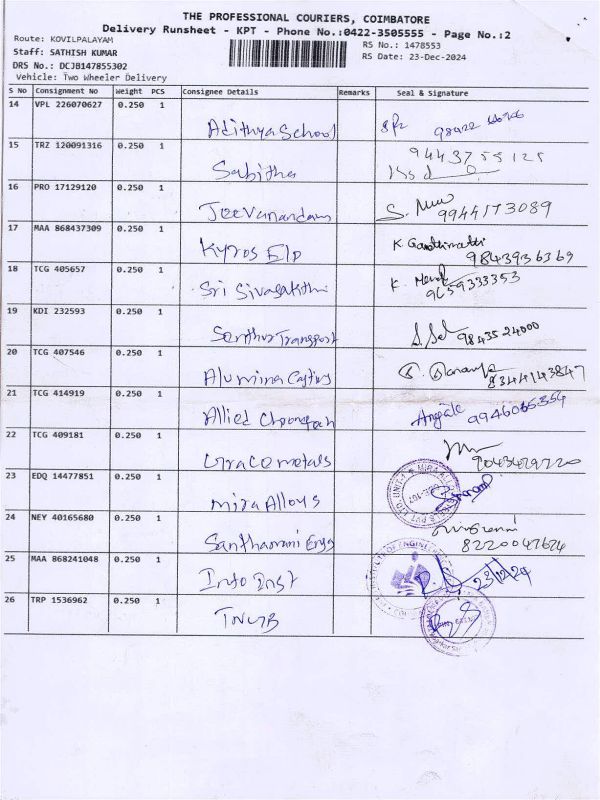 THE PROFESSIONAL COURIERS, COIMBATORE
Delivery Runsheet - KPT - Phone No.:0422-3505555 - Page No.:2
Route: KOVILPALAYAM
RS No.: 1478553
Staff: SATHISH KUMAR
RS Date: 23-Dec-2024
DRS No.: DCJB147855302
Vehicle: Two Wheeler Delivery
S No Consignment No Weight PCS Consignee Details Remarks Seal & Signature
14 VPL 226070627 0.250 1
Adithya School
15 TRZ 120091316 0.250 1 9443755125
Sabitha
16 PRO 17129120 0.250 1
Jeevanandam 9944173089
17 MAA 868437309 0.250 1
Kyros E/p 9843936369
18 TCG 405657 0.250 1
Sri Sivasakthi 9659333353
19 KDI 232593 0.250 1
Santhur Transport 9843524000
20 TCG 407546 0.250 1
Alumina Casting 8344143847
21 TCG 414919 0.250 1
Allied
22 TCG 409181 0.250 1
Graco metals
23 EDQ 14477851 0.250 1
Mira Alloys
24 NEY 40165680 0.250 1
Santhamani Engg 8220047624
25 MAA 868241048 0.250 1
Info Inst 23/12/24
26 TRP 1536962 0.250 1
TNGB